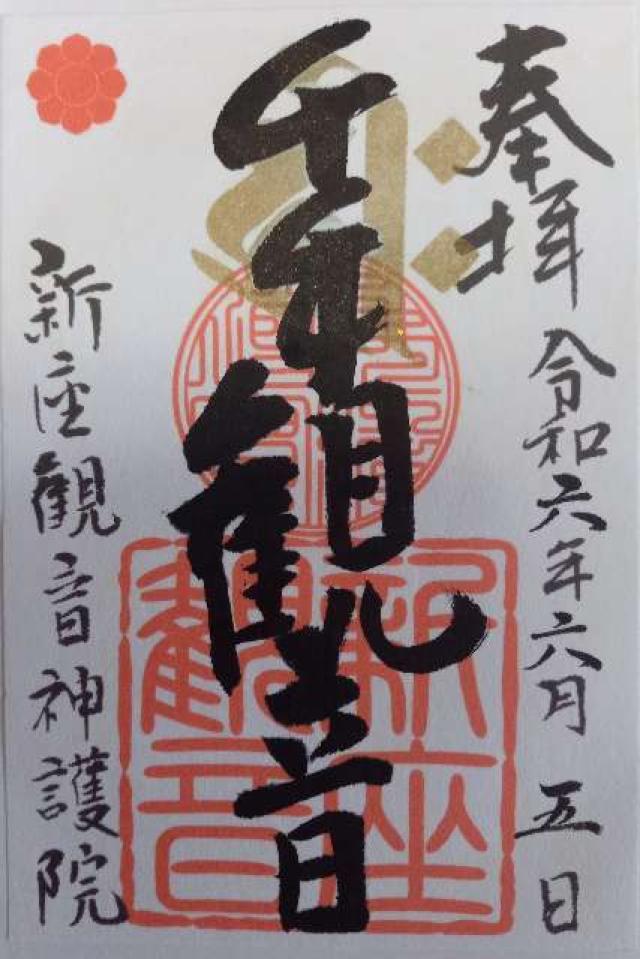 奉拝
令和六年六月五日
千手観音
新座観音神護院
新座
観音